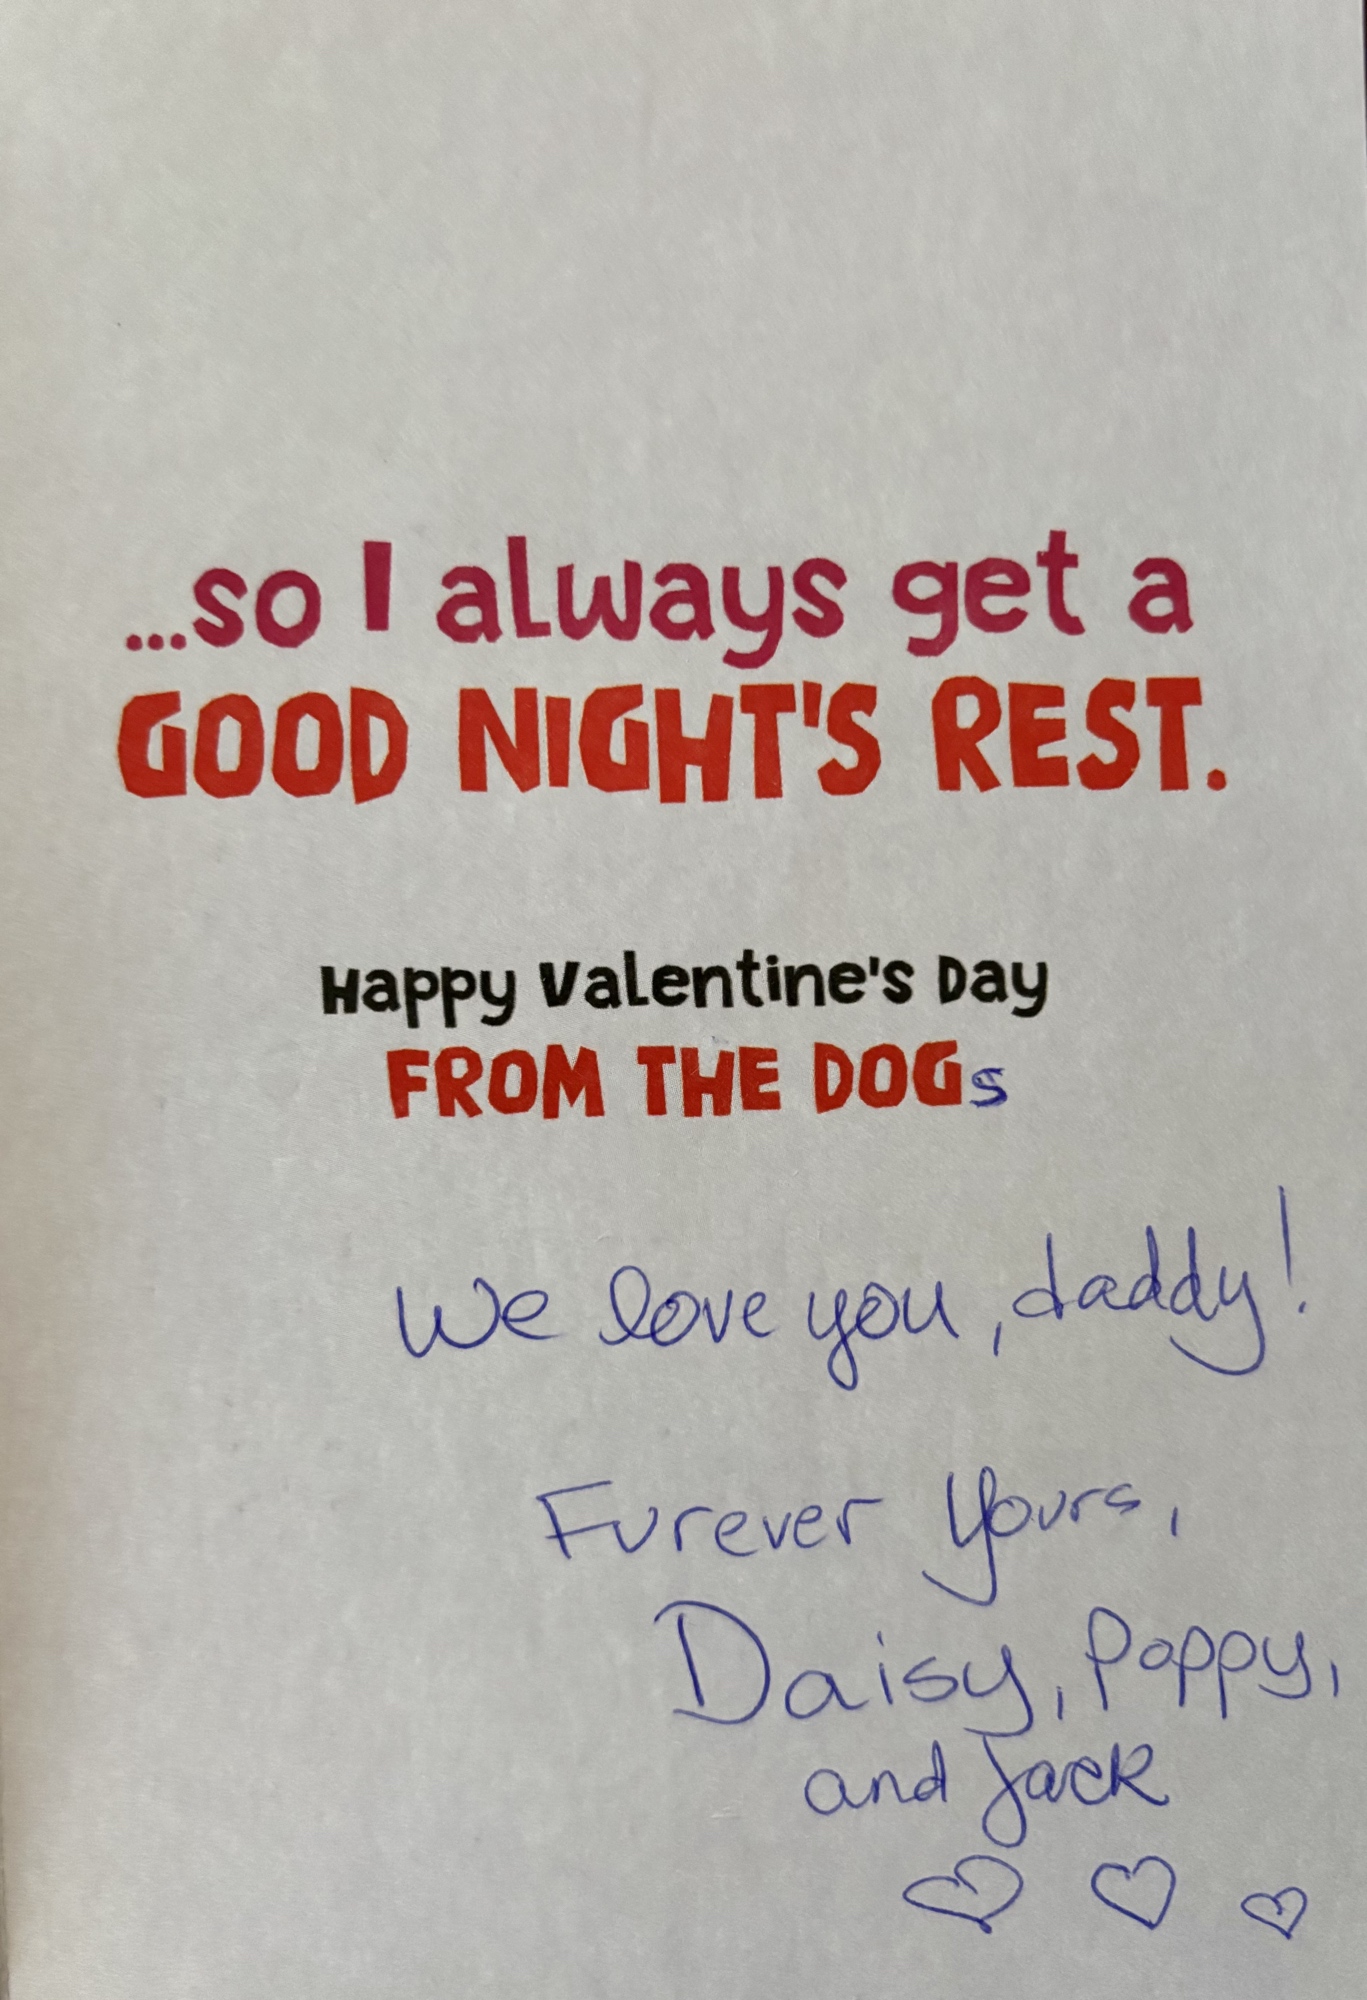 ...so I always get a
GOOD NIGHT'S REST.
Happy Valentine's Day
FROM THE DOGs
We love you, daddy!
Furever Yours,
Daisy, Poppy,
and Jack